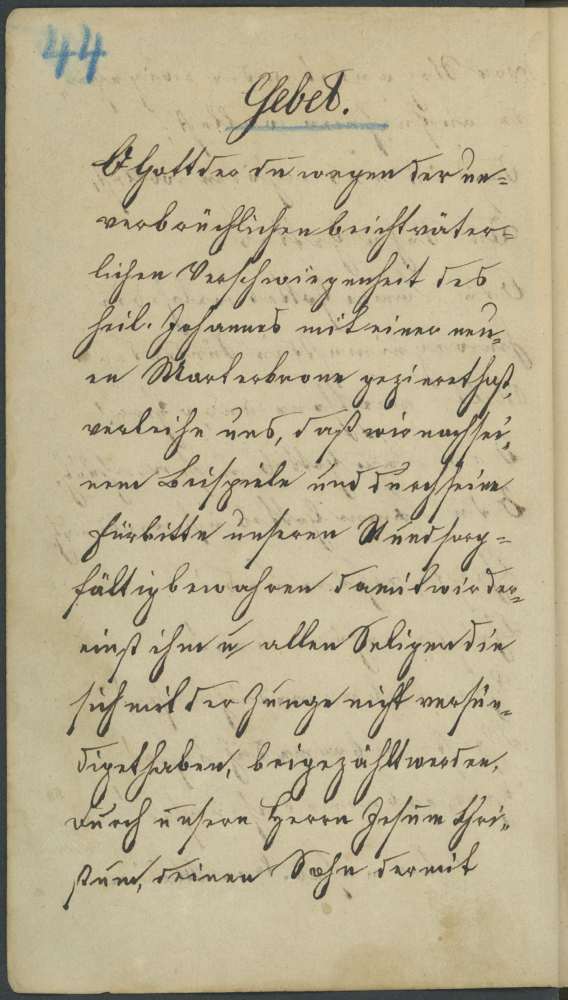 44
Gebet.
O Gott der du wegen der un=
verbrüchlichen beichtväter=
lichen Verschwiegenheit des
heil. Johannes mit einer neu,
en Marterkrone gezieret hast,
verleihe uns, daß wir nach sei,
nem Beispiele und durch seine
Fürbitte unseren Mund sorg=
fältig bewahren damit wir der,
einst ihm u allen Seligen die
sich mit der Zunge nicht versün,
diget haben, beigezählt werden,
Durch unsern Herrn Jesum Chri,
stum, deinen Sohn der mit